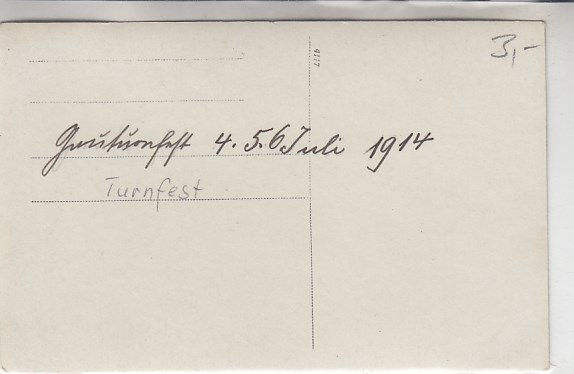 3,-
4117
Gauturnfest 4. 5. 6 Juli 1914
Turnfest